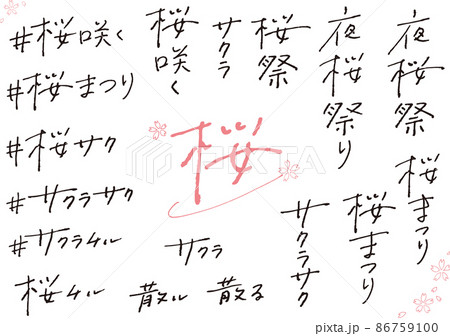 #桜咲く
#桜まつり
#桜サク
#サクラサク
#サクラチル
桜チル
桜咲く
サクラ
桜祭
夜桜祭り
夜桜祭
桜
サクラ
散ル
散る
サクラサク
桜まつり
桜まつり
PIXTA
pixta.jp - 86759100